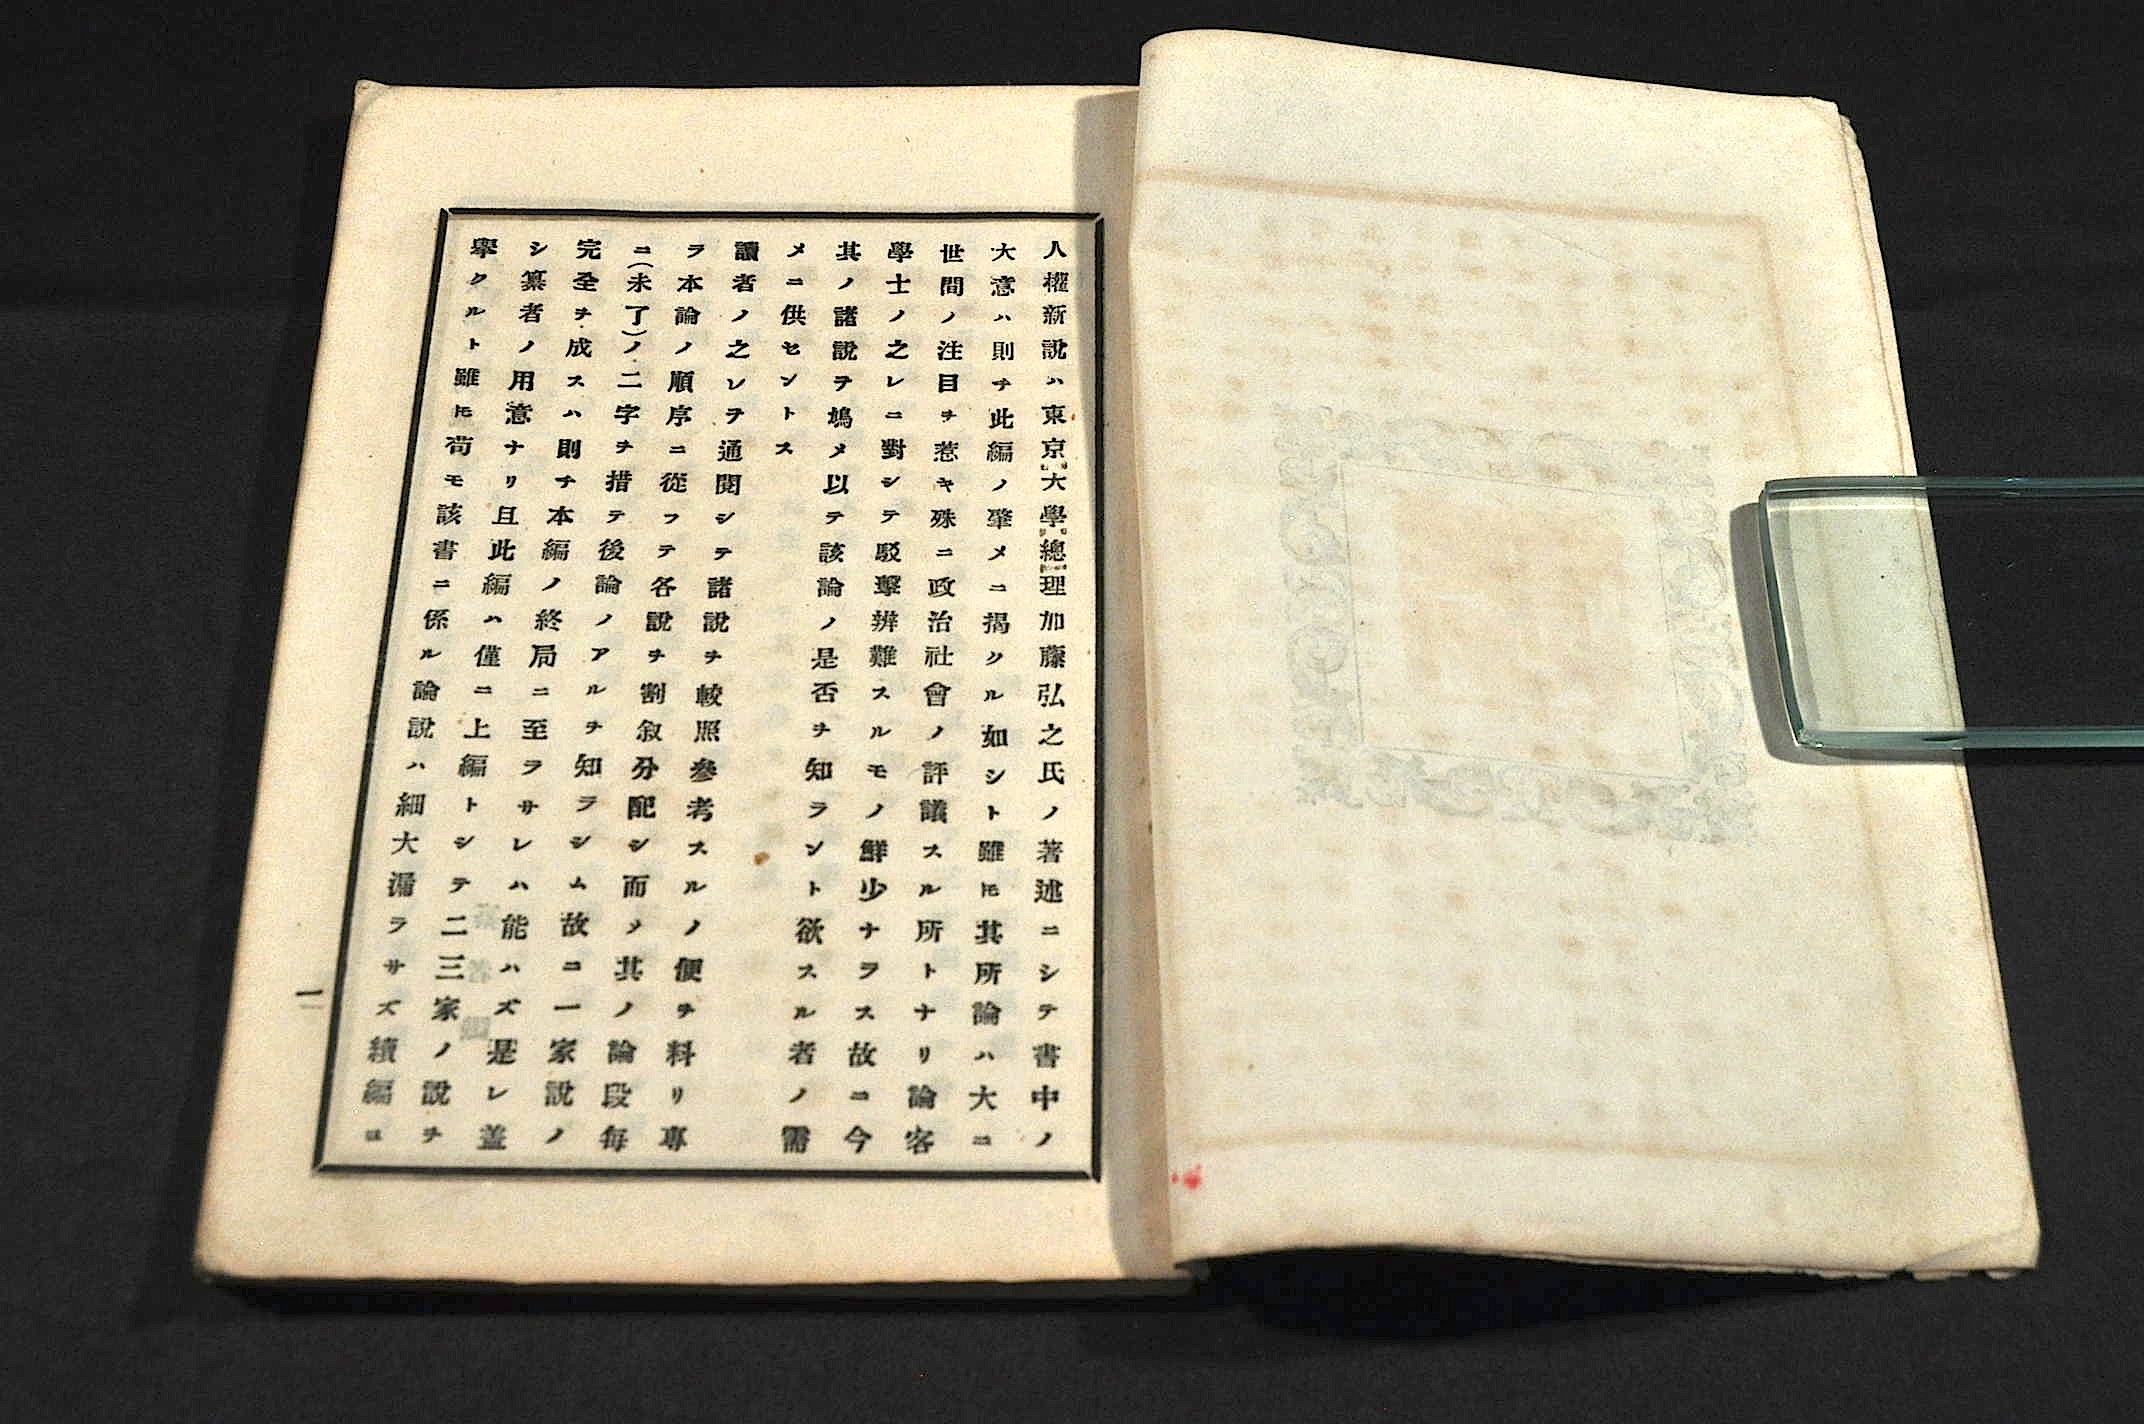 人權新說ハ東京大學總理加藤弘之氏ノ著述ニシテ書中ノ
大意ハ則チ此編ノ肇メニ揭クル如シト雖𪜈其所論ハ大ニ
世間ノ注目ヲ惹キ殊ニ政治社會ノ評議スル所トナリ論客
學士ノ之レニ對シテ駁擊辨難スルモノ鮮少ナラス故ニ今
其ノ諸說ヲ鳩メ以テ該論ノ是否ヲ知ラント欲スル者ノ需
メニ供セントス
讀者ノ之レヲ通閱シテ諸說ヲ較照參考スルノ便ヲ料リ專
ラ本論ノ順序ニ從フテ各說ヲ割敘分配シ而メ其ノ論段每
ニ(未了)ノ二字ヲ措テ後論ノアルヲ知ラシム故ニ一家說ノ
完全ヲ成スハ則チ本編ノ終局ニ至ラサレハ能ハズ是レ蓋
シ纂者ノ用意ナリ且此編ハ僅ニ上編トシテ二三家ノ說ヲ
擧クルト雖𪜈苟モ該書ニ係ル論說ハ細大漏ラサズ續編ニ
一